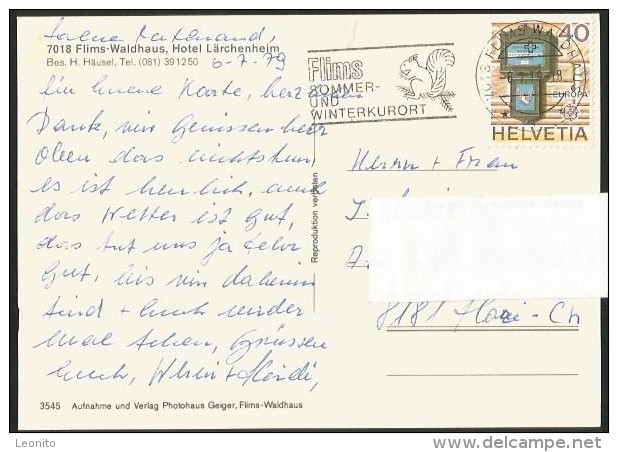 7018 Flims-Waldhaus, Hotel Lärchenheim
Bes. H. Häusel, Tel. (081) 391250
6-7-79
Karte, herz
Dank, wir Geniessen hier
Oben das nichtstun
es ist herrlich, auch
das Wetter ist gut,
das tut uns ja sehr
gut, bis wir daheim
sind + Euch wieder
mal sehen, Grüssen
Euch,
Flims
SOMMER-
UND
WINTERKURORT
40
EUROPA
HELVETIA
Reproduktion verboten
Herrn + Frau
8181
3545 Aufnahme und Verlag Photohaus Geiger, Flims-Waldhaus
Leonito
delcampe.net